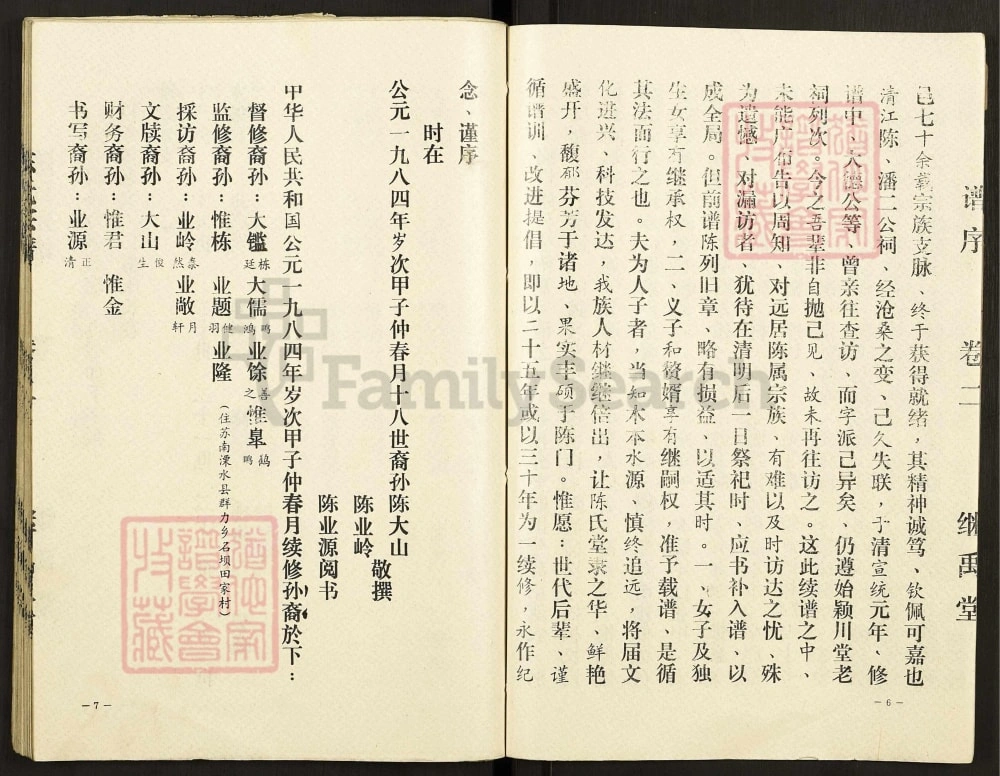 谱序 卷一 继禹堂
邑七十余载宗族支脉、终于获得就绪，其精神诚笃、钦佩可嘉也
清江陈、潘二公祠、经沧桑之变、己久失联，于清宣统元年、修
谱中、大德公等、曾亲往查访、而字派己异矣、仍遵始颖川堂老
祠列次。今之吾辈非自抛己见、故未再往访之。这此续谱之中、
未能广布告以周知、对远居陈属宗族、有难以及时访达之忧、殊
为遗憾、对漏访者、犹待在清明后一日祭祀时、应书补入谱、以
成全局。但前谱陈列旧章、略有损益、以适其时。一、女子及独
生女享有继承权，二、义子和赘婿享有继嗣权，准予载谱、是循
其法而行之也。夫为人子者，当如木本水源、慎终追远，将届文
化进兴、科技发达，我族人材继继倍出，让陈氏堂隶之华、鲜艳
盛开，馥郁芬芳于诸地、果实丰硕于陈门。惟愿：世代后辈、谨
循谱训、改进提倡，即以二十五年或以三十年为一续修，永作纪
－6－
念、谨序
时在
公元一九八四年岁次甲子仲春月十八世裔孙陈大山
陈业岭 敬撰
陈业源阅书
中华人民共和国公元一九八四年岁次甲子仲春月续修孙裔於下：
督修裔孙：大鑑栋廷 大儒鸣鸿 业馀善之 惟皋鹉鸣
监修裔孙：惟栋 业题健羽 业隆（住苏南溧水县群力乡石坝田家村）
採访裔孙：业岭泰然 业敞月轩
文牍裔孙：大山俊生
财务裔孙：惟君 惟金
书写裔孙：业源正清
－7－
FamilySearch